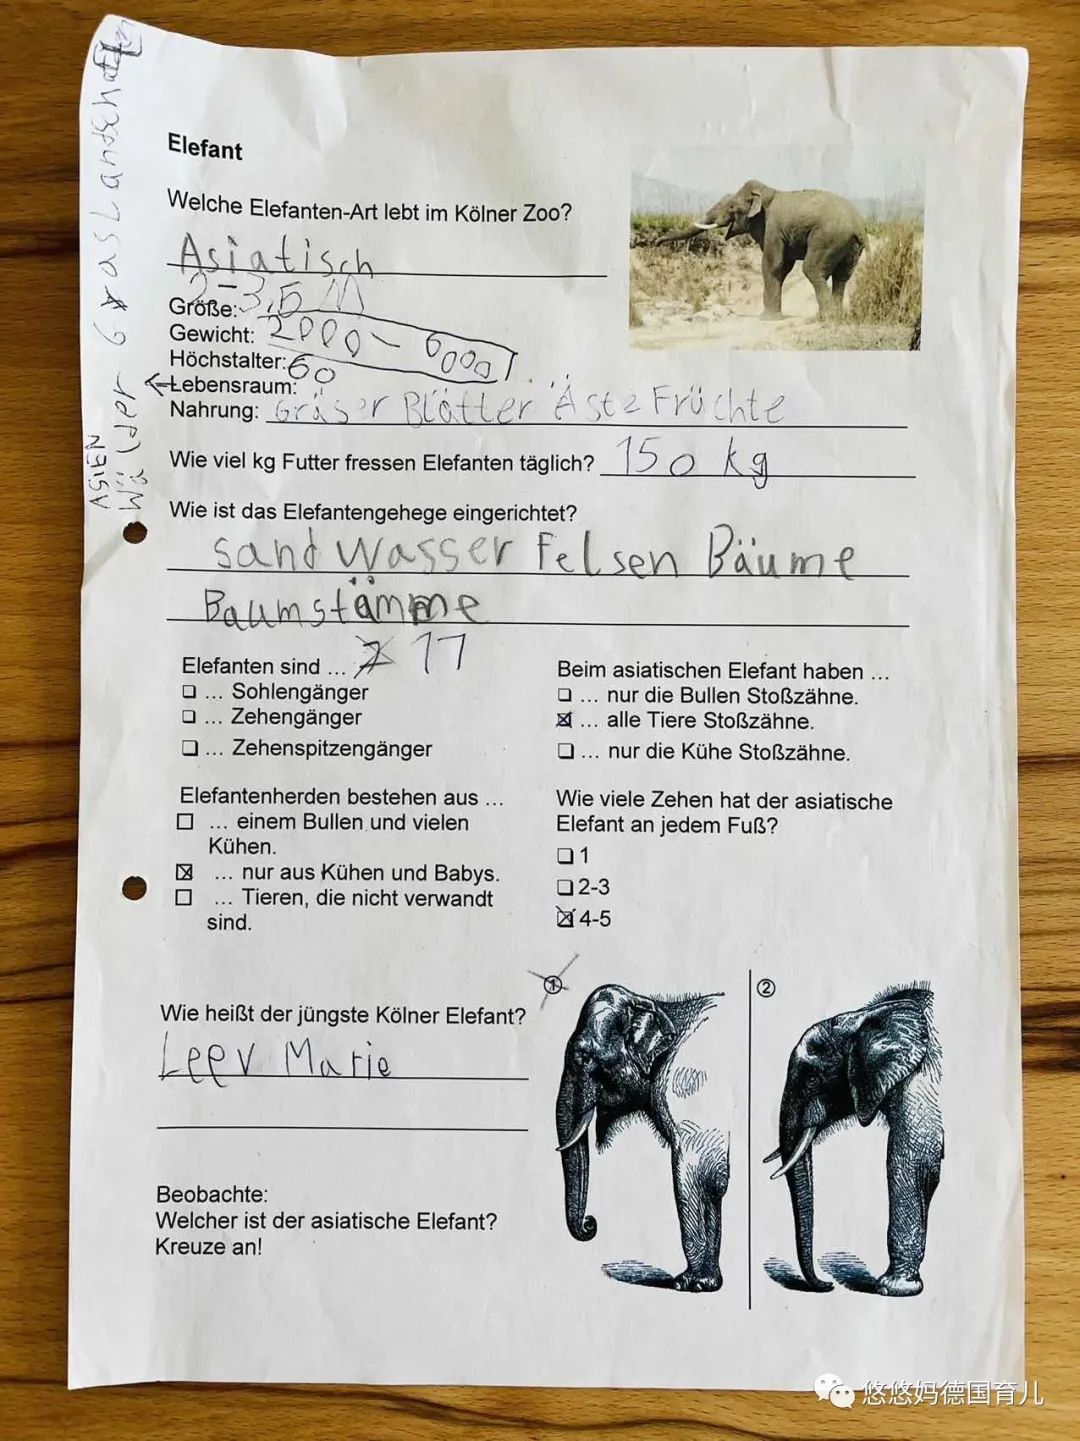 Elefant
Welche Elefanten-Art lebt im Kölner Zoo?
Asiatisch
Größe: 2-3,5 M
Gewicht: 2000 - 6000
Höchstalter: 60
←Lebensraum:
ASIEN
Wälder Graslandschaften
Nahrung: Gräser Blätter Äste Früchte
Wie viel kg Futter fressen Elefanten täglich? 150 kg
Wie ist das Elefantengehege eingerichtet?
Sand Wasser Felsen Bäume
Baumstämme
17
Elefanten sind ...
❏ ... Sohlengänger
❏ ... Zehengänger
❏ ... Zehenspitzengänger
Beim asiatischen Elefant haben ...
❏ ... nur die Bullen Stoßzähne.
☒ ... alle Tiere Stoßzähne.
❏ ... nur die Kühe Stoßzähne.
Elefantenherden bestehen aus ...
☐ ... einem Bullen und vielen
Kühen.
☒ ... nur aus Kühen und Babys.
☐ ... Tieren, die nicht verwandt
sind.
Wie viele Zehen hat der asiatische
Elefant an jedem Fuß?
❏ 1
❏ 2-3
☒ 4-5
Wie heißt der jüngste Kölner Elefant?
Leev Marie
Beobachte:
Welcher ist der asiatische Elefant?
Kreuze an!
①
②
悠悠妈德国育儿